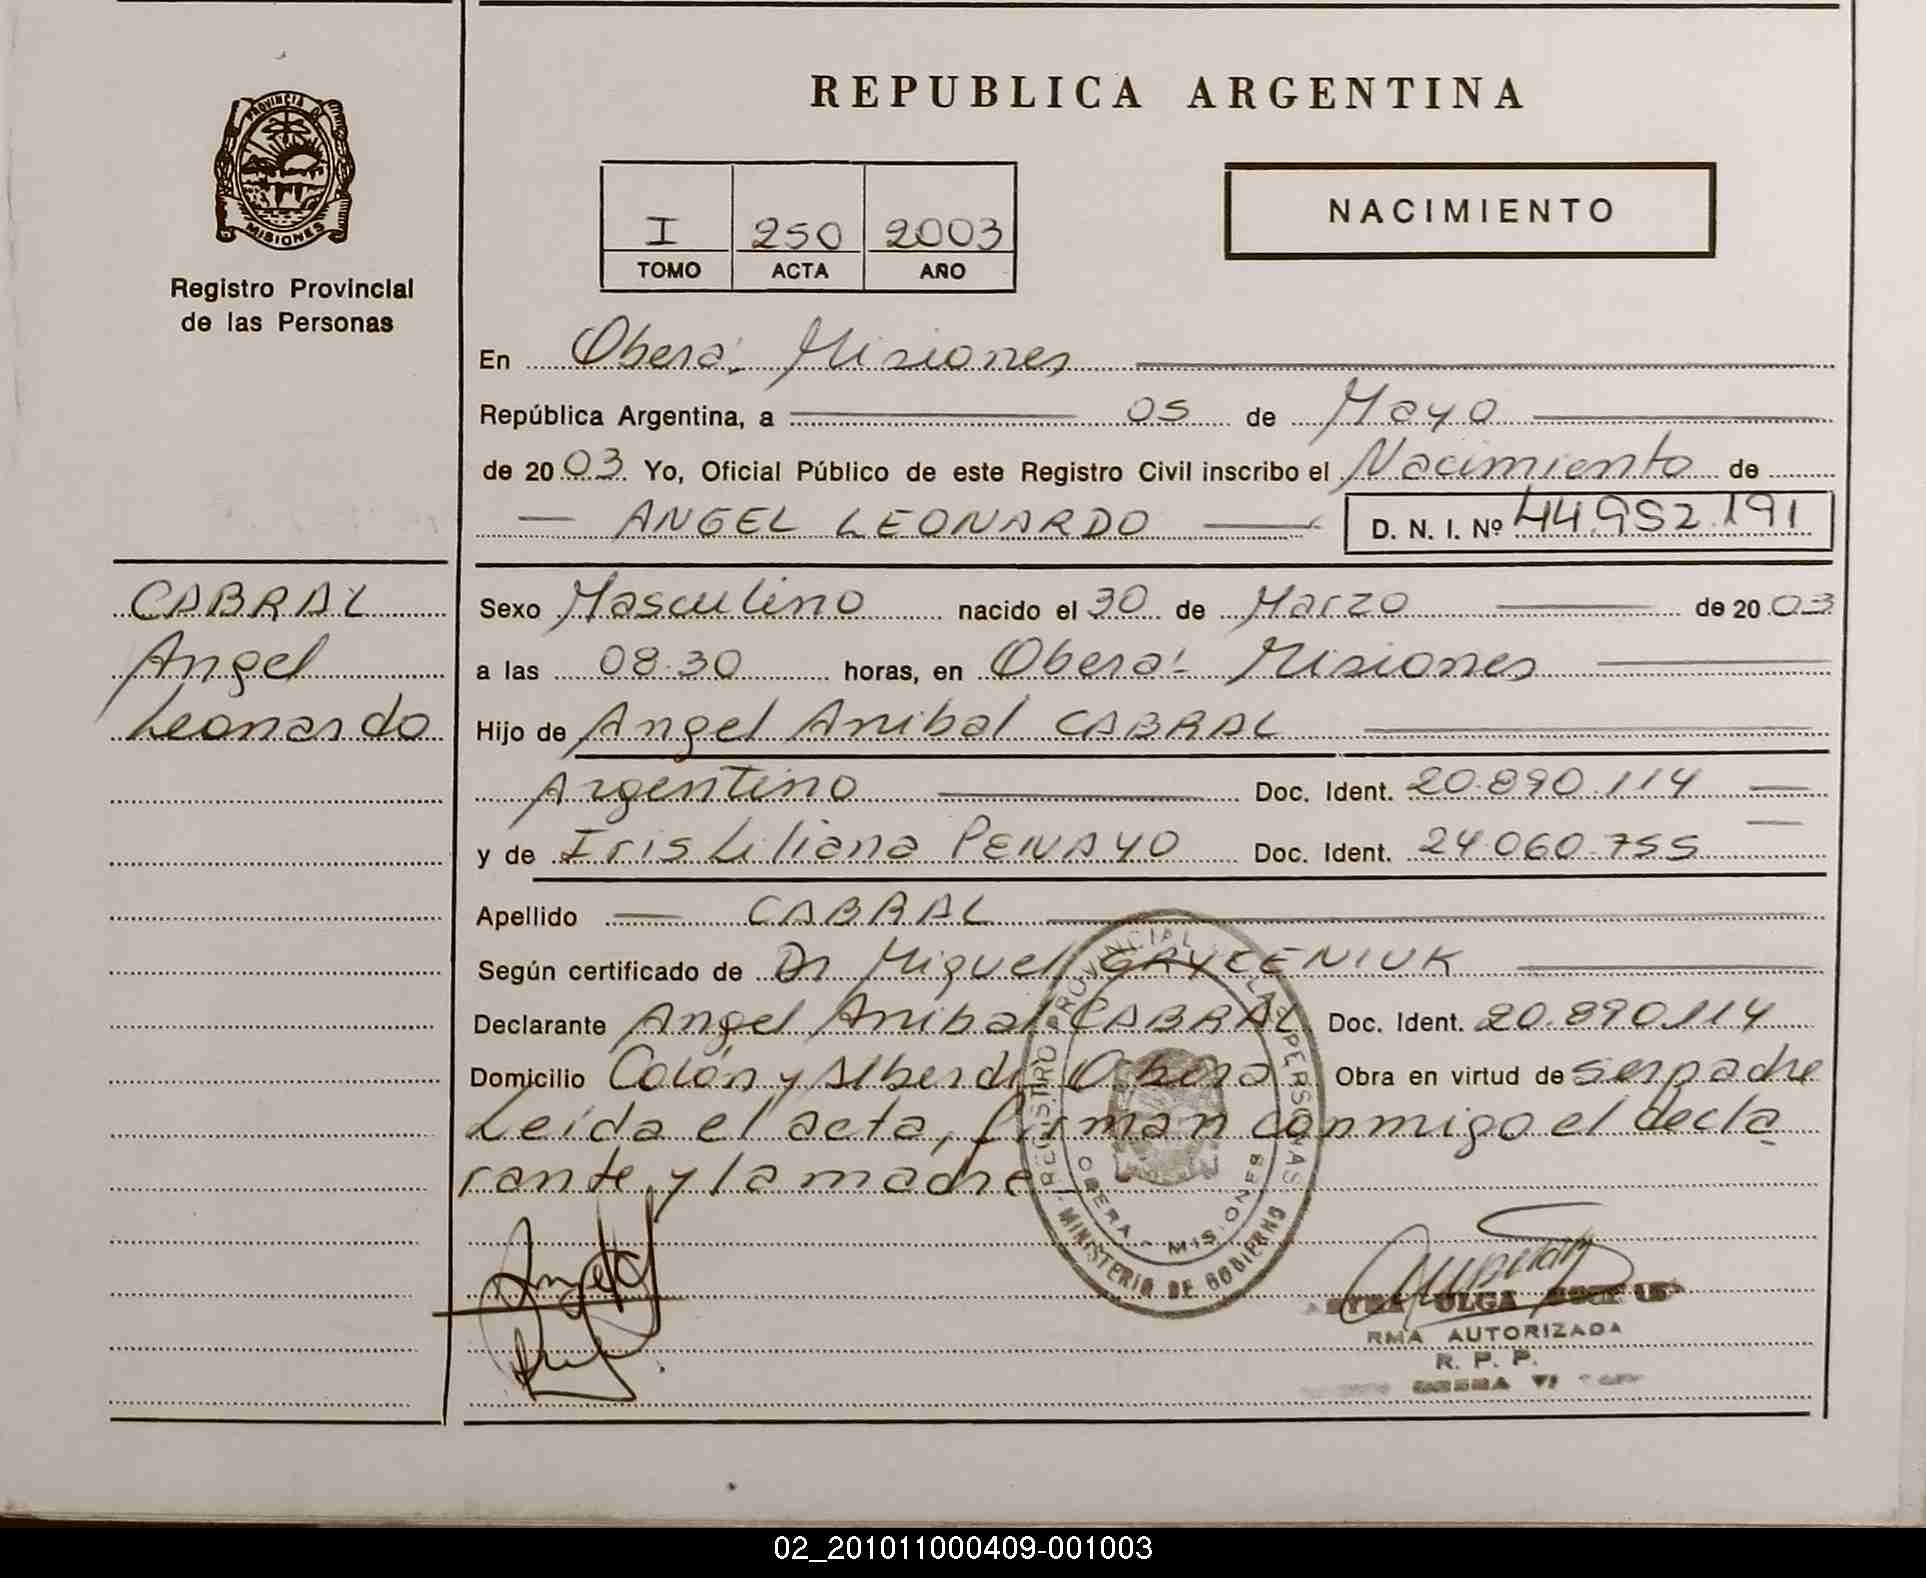 REPUBLICA ARGENTINA
PROVINCIA DE
MISIONES
Registro Provincial
de las Personas
I 250 2003
TOMO ACTA AÑO
NACIMIENTO
En Oberá, Misiones
República Argentina, a 05 de Mayo
de 2003 Yo, Oficial Público de este Registro Civil inscribo el Nacimiento de
ANGEL LEONARDO D. N. I. Nº 44.952.191
CABRAL
Angel
Leonardo
Sexo Masculino nacido el 30 de Marzo de 2003
a las 08.30 horas, en Oberá - Misiones
Hijo de Angel Anibal CABRAL
Argentino Doc. Ident. 20.890.114
y de Iris Liliana PENAYO Doc. Ident. 24.060.755
Apellido CABRAL
Según certificado de Dr Miguel GRYCENIUK
Declarante Angel Anibal CABRAL Doc. Ident. 20.890.114
Domicilio Colón y Alberdi Oberá Obra en virtud de ser padre
Leída el acta, firman conmigo el decla
rante y la madre
REGISTRO PROVINCIAL DE LAS PERSONAS
OBERA - MISIONES
MINISTERIO DE GOBIERNO
OLGA
RMA AUTORIZADA
R. P. P.
OBERA
02_201011000409-001003